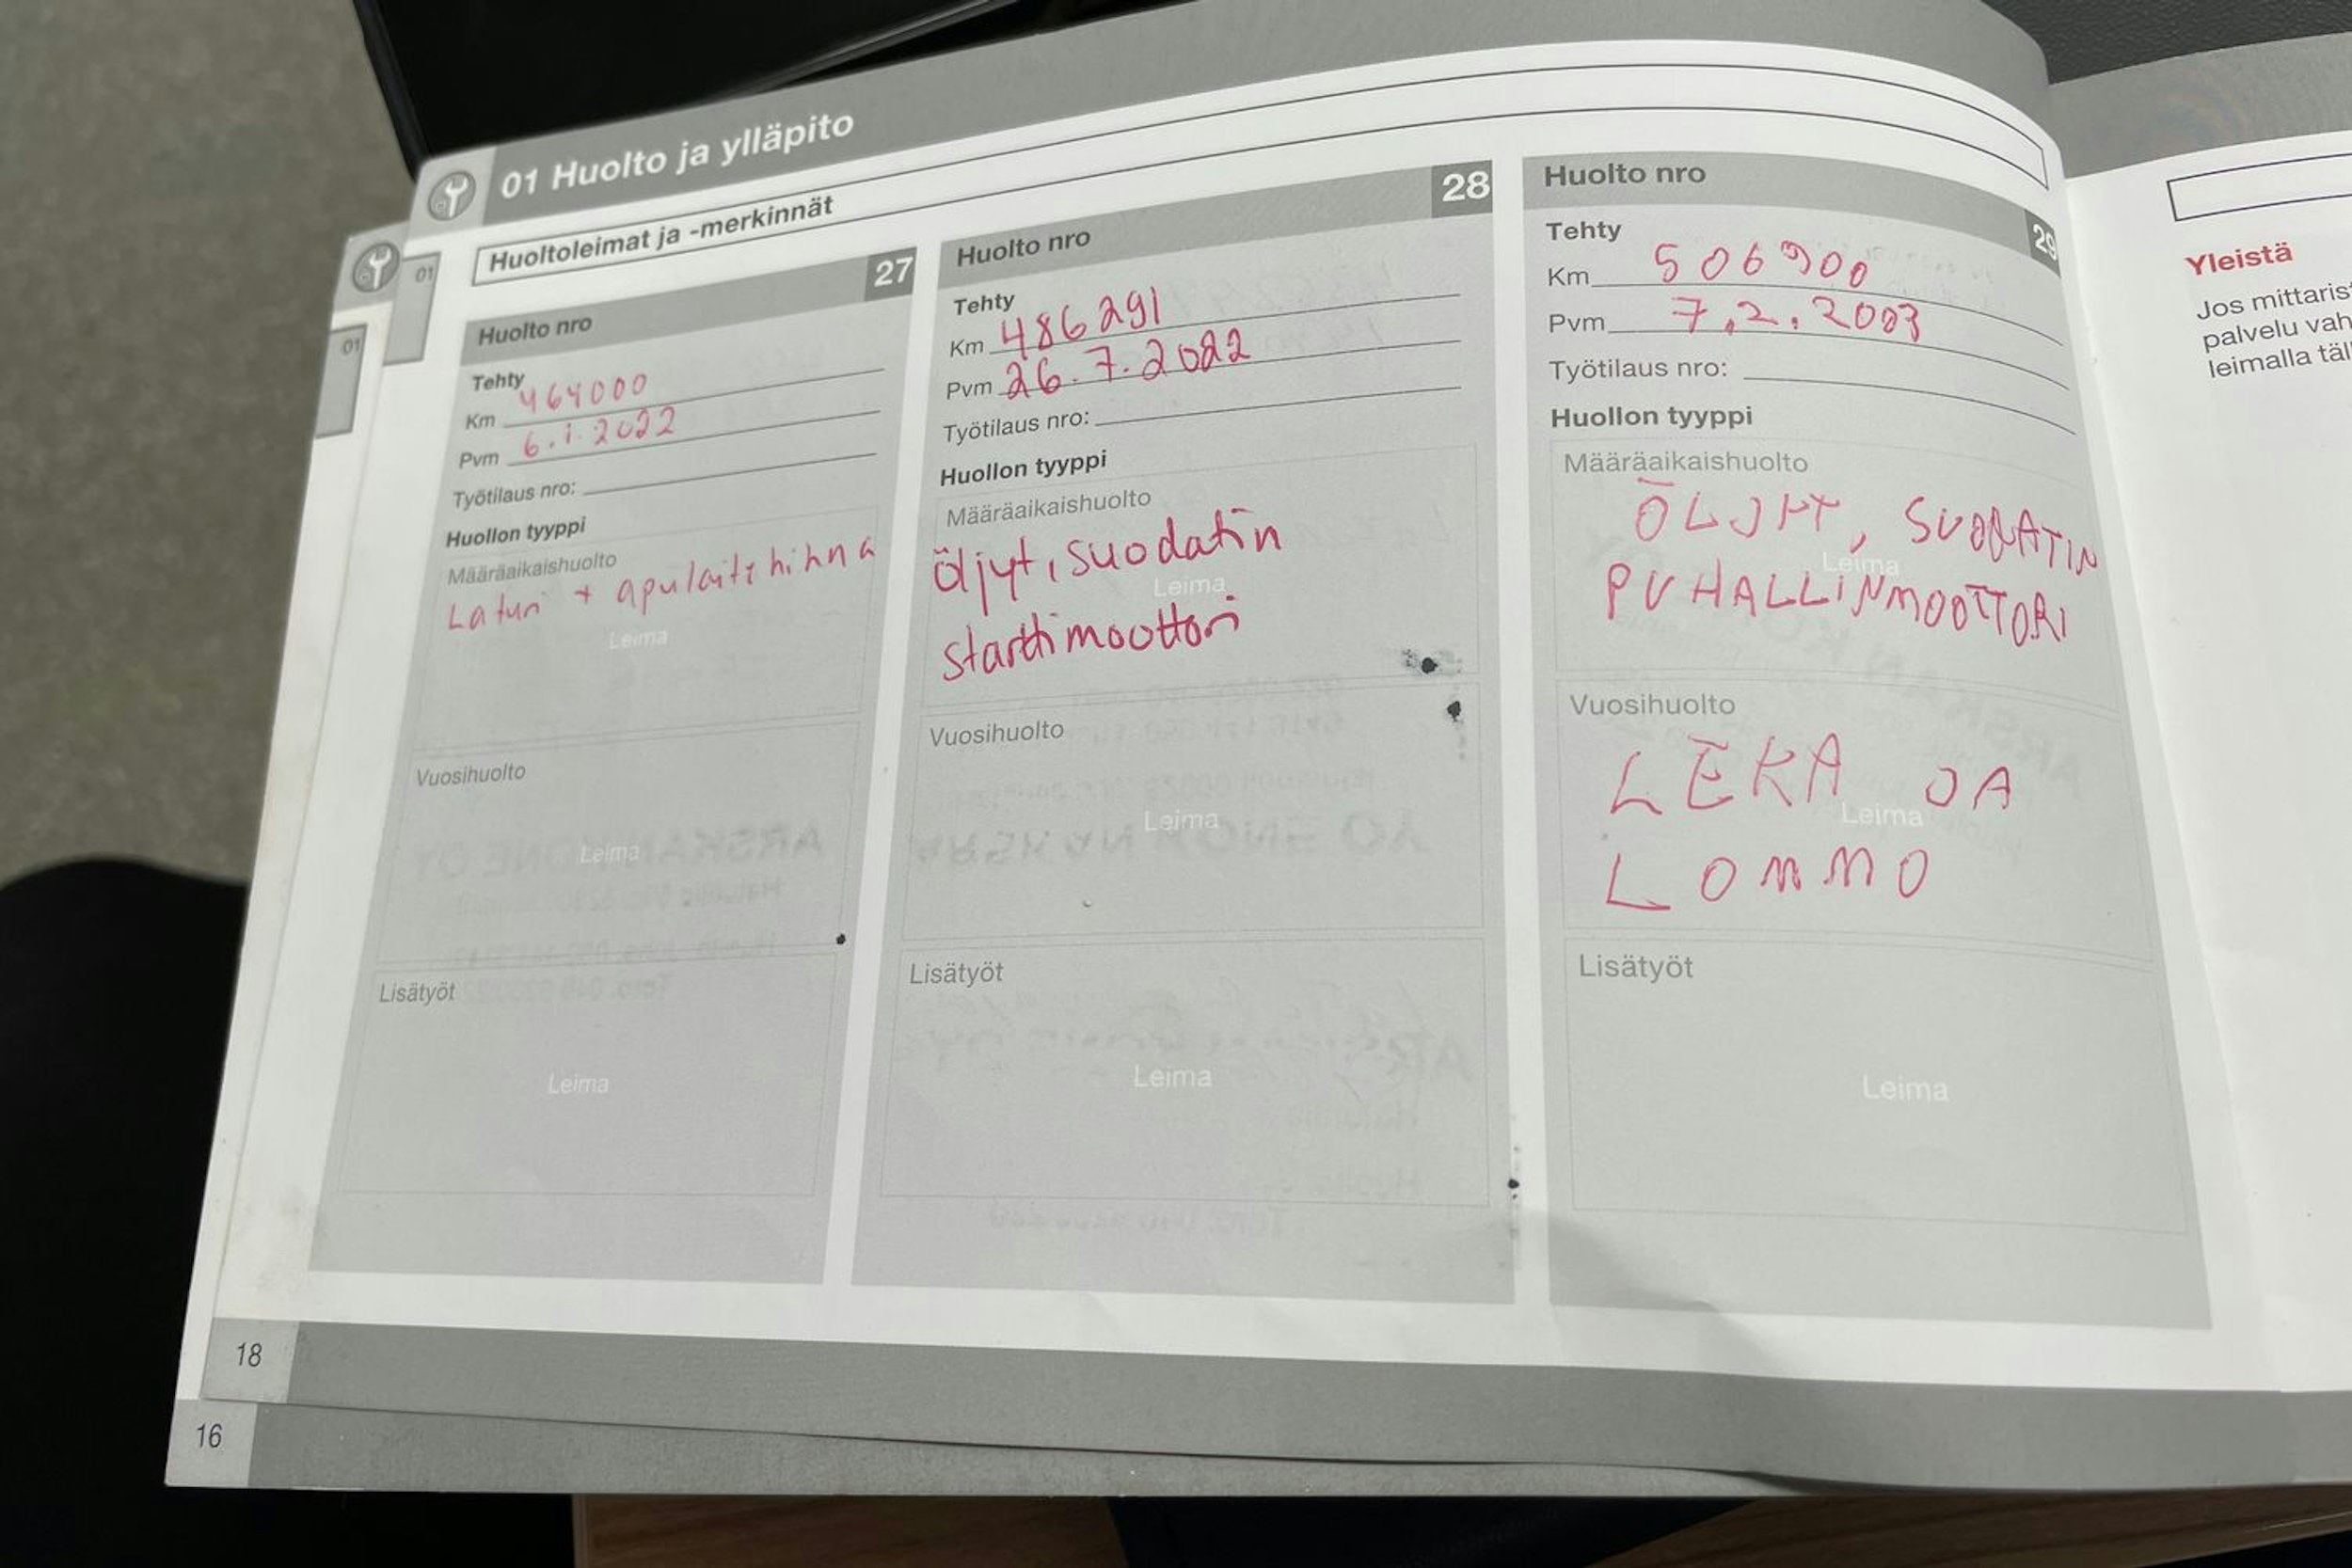 01 Huolto ja ylläpito
Huoltoleimat ja -merkinnät
01
01
Huolto nro 27
Tehty
Km 464000
Pvm 6.1.2022
Työtilaus nro:
Huollon tyyppi
Määräaikaishuolto
Laturi + apulaitehihna
Leima
Vuosihuolto
Leima
Lisätyöt
Leima
Huolto nro 28
Tehty
Km 486291
Pvm 26.7.2022
Työtilaus nro:
Huollon tyyppi
Määräaikaishuolto
öljyt, suodatin
Leima
starttimoottori
Vuosihuolto
Leima
Lisätyöt
Leima
Huolto nro 29
Tehty
Km 506900
Pvm 7.2.2003
Työtilaus nro:
Huollon tyyppi
Määräaikaishuolto
ÖLJYT, SUODATIN
Leima
PUHALLINMOOTTORI
Vuosihuolto
LEKA JA
Leima
LOMMO
Lisätyöt
Leima
Yleistä
Jos mittarist
palvelu vah
leimalla täl
18
16